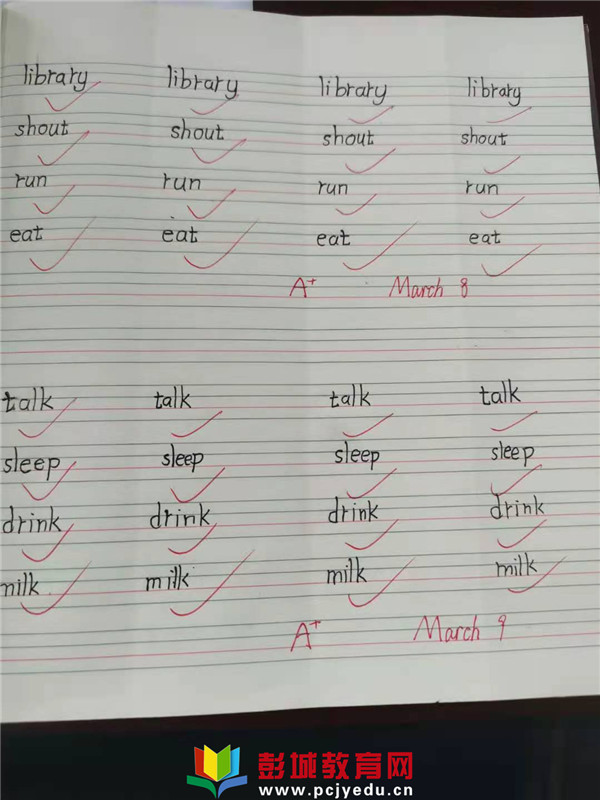 library library library library
shout shout shout shout
run run run run
eat eat eat eat
A+ March 8
talk talk talk talk
sleep sleep sleep sleep
drink drink drink drink
milk milk milk milk
A+ March 9
彭城教育网
www.pcjyedu.cn